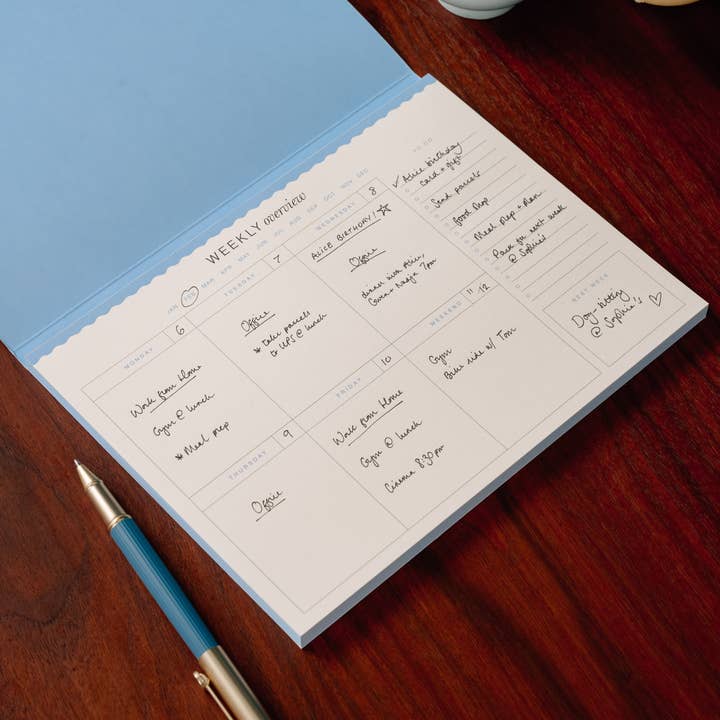 WEEKLY overview
JAN FEB MAR APR MAY JUN JUL AUG SEP OCT NOV DEC
MONDAY 6
Work from Home
Gym @ lunch
* Meal prep
TUESDAY 7
Office
* take parcels
to UPS @ lunch
WEDNESDAY 8
ALICE BIRTHDAY!
Office
dinner with Alice,
+ Nadja 7pm
THURSDAY 9
Office
FRIDAY 10
Work from Home
Gym @ lunch
Cinema 8:30pm
WEEKEND 11 12
Gym
Bike ride w/ Tom
TO DO
✓ Alice birthday
card + gift
Send parcels
food shop
Meal prep + plan
Pack for next week
@ Sophie's
NEXT WEEK
Dog-sitting
@ Sophie's ♡